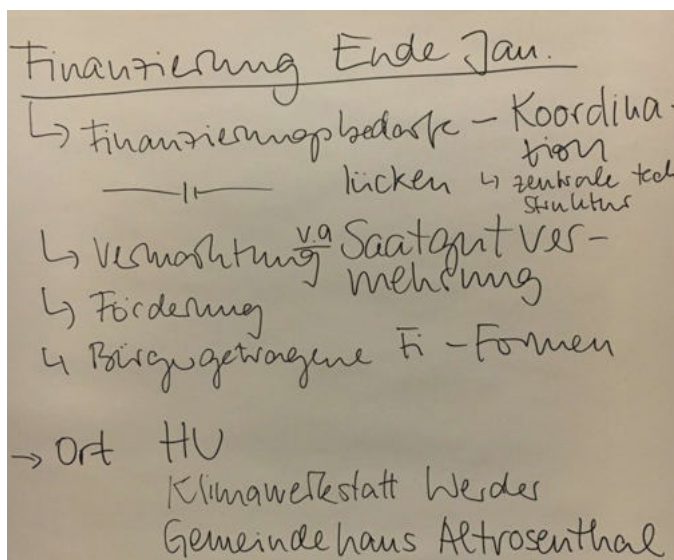 Finanzierung Ende Jan.
↳ Finanzierungsbedarfe – Koordina-
tion
—"— lücken ↳ zentrale tech
struktur
↳ Vermarktung v.a Saatgutver-
mehrung
↳ Förderung
↳ Bürgergetragene Fi-Formen
→ Ort HU
Klimawerkstatt Werder
Gemeindehaus Altrosenthal